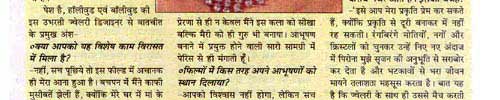 पेश है, हॉलीवुड एवं बॉलीवुड की
इस उभरती ज्वेलरी डिजाइनर से बातचीत
के प्रमुख अंश-
०क्या आपको यह विशेष काम विरासत
में मिला है?
-नहीं, सच पूछिये तो इस फील्ड में अचानक
ही मेरा आना हुआ है। बचपन में मैंने काफी
मुसीबतें झेली हैं, क्योंकि मेरे घर में मां के
प्रेरणा से ही न केवल मैंने इस कला को सीखा
बल्कि मैरी को ही गुरु भी बनाया। आभूषण
बनाने में प्रयुक्त होने वाली सारा सामग्री में
पेरिस से ही मंगाती हूँ।
०फिल्मों में किस तरह अपने आभूषणों को
स्थान दिलाया?
-आपको विश्वास नहीं होगा, लेकिन सच
-'इसे आप मेरा प्रकृति प्रेम कह सकते
हैं, क्योंकि प्रकृति से दूरी बनाकर मैं नहीं
रह सकती। रंगबिरंगे मोतियों, नगों और
क्रिस्टलों को चुनकर उन्हें लिए नए अंदाज
में पिरोना मुझे सृजन की अनुभूति से सराबोर
कर देता है और भटकावों से भरा जीवन
मायने तलाशता महसूस करता है। बात यह
है कि ज्वेलरी के साथ ही उससे मैच करती